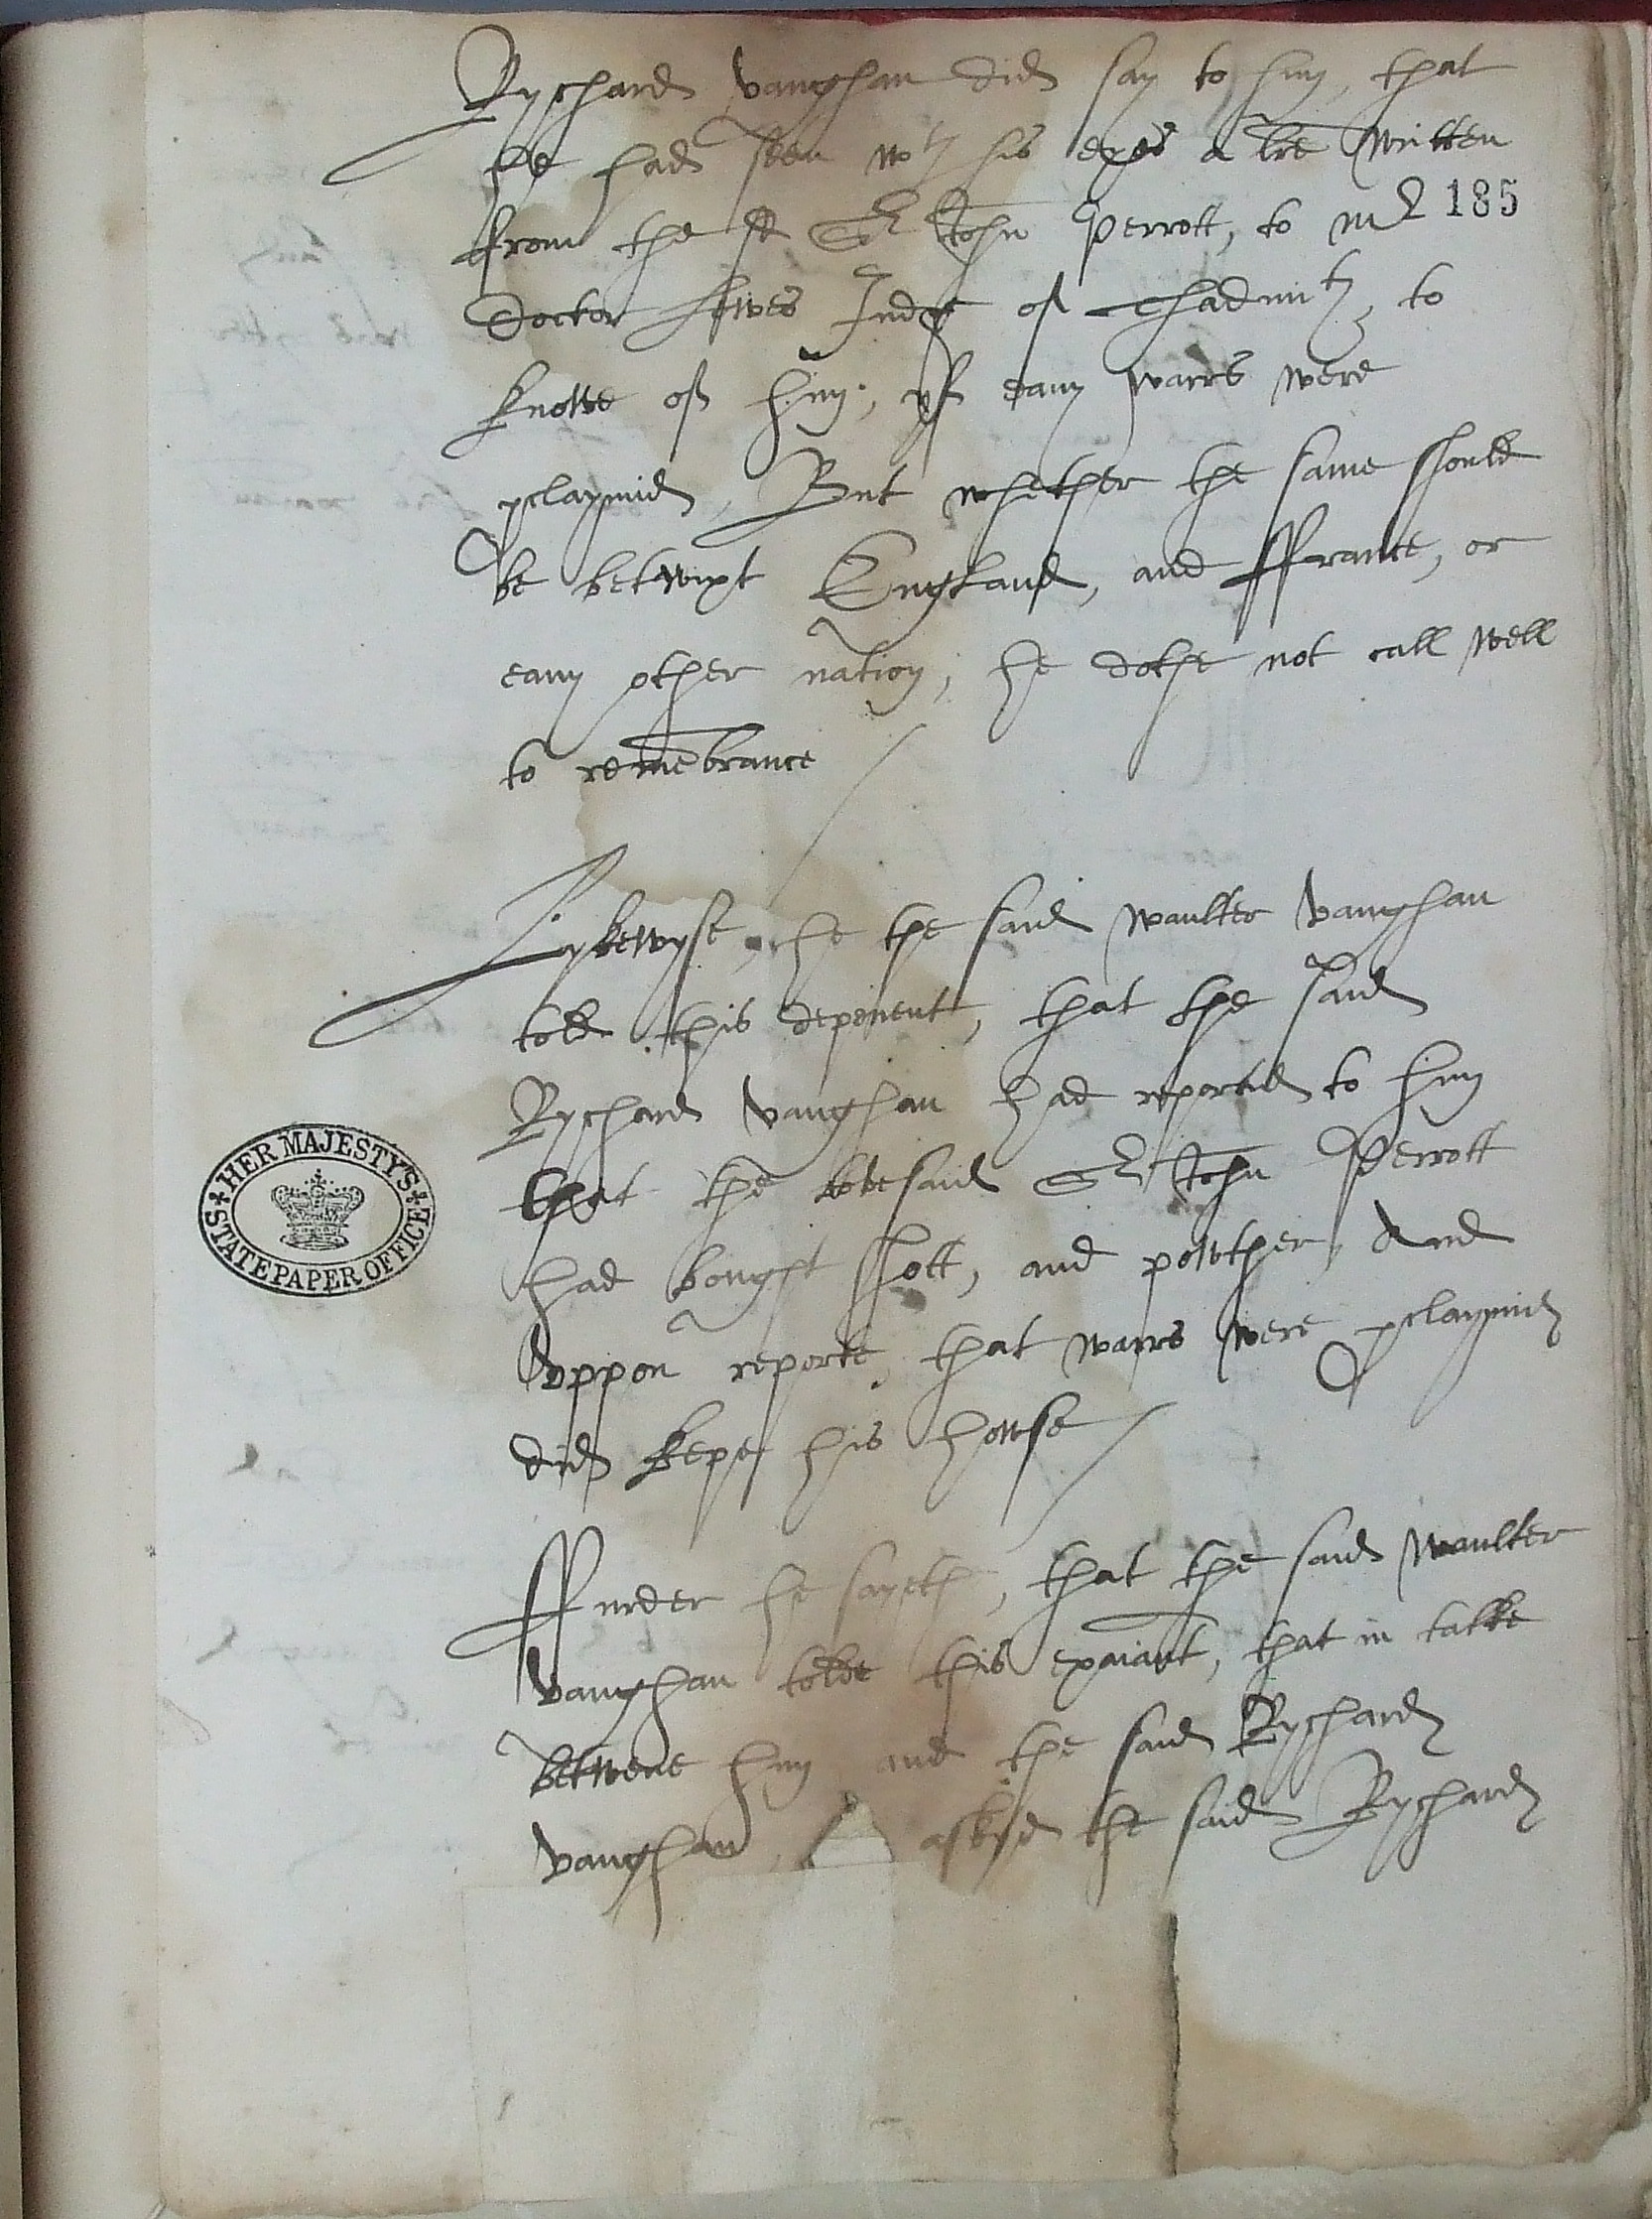 Rychard Vaughan did say to hym, that
he had seen wth his eyes a lre written
185
from the sd Sr John Perrott, to mr
Doctor Lewes Judge of Thadmity, to
knowe of hym, yf eany warrs were
pclaymid, But whether the same should
be betwixt England, and ffrance, or
eany other nation, he dothe not call well
to remembrance
Lykewyse, he the said Waulter Vaughan
told this deponent, that the said
Rychard Vaughan had reported to hym
that the said Sr John Perrott
had bought shott, and powther, And
vppon reporte that warrs were pclaymid
did kepe his howse
ffurder he sayeth, that the said Waulter
Vaughan tolde this exaiant, that in talke
betwene hym and the said Rychard
Vaughan, askyd the said Rychard
HER MAJESTY'S
STATE PAPER OFFICE